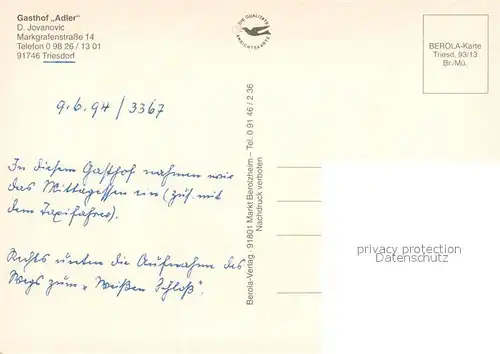 Gasthof „Adler"
D. Jovanovic
Markgrafenstraße 14
Telefon 0 98 26 / 13 01
91746 Triesdorf
DIE QUALITÄTS
ANSICHTSKARTE
BEROLA-Karte
Triesd. 93/13
Br./Mü.
9.6.94 / 3367
In diesem Gasthof nahmen wir
das Mittagessen ein (zus. mit
dem Taxifahrer).
Rechts unten die Aufnahm des
Wegs zum „Weißen Schloß".
Berola-Verlag · 91801 Markt Berolzheim – Tel. 0 91 46 / 2 36
Nachdruck verboten
privacy protection
Datenschutz